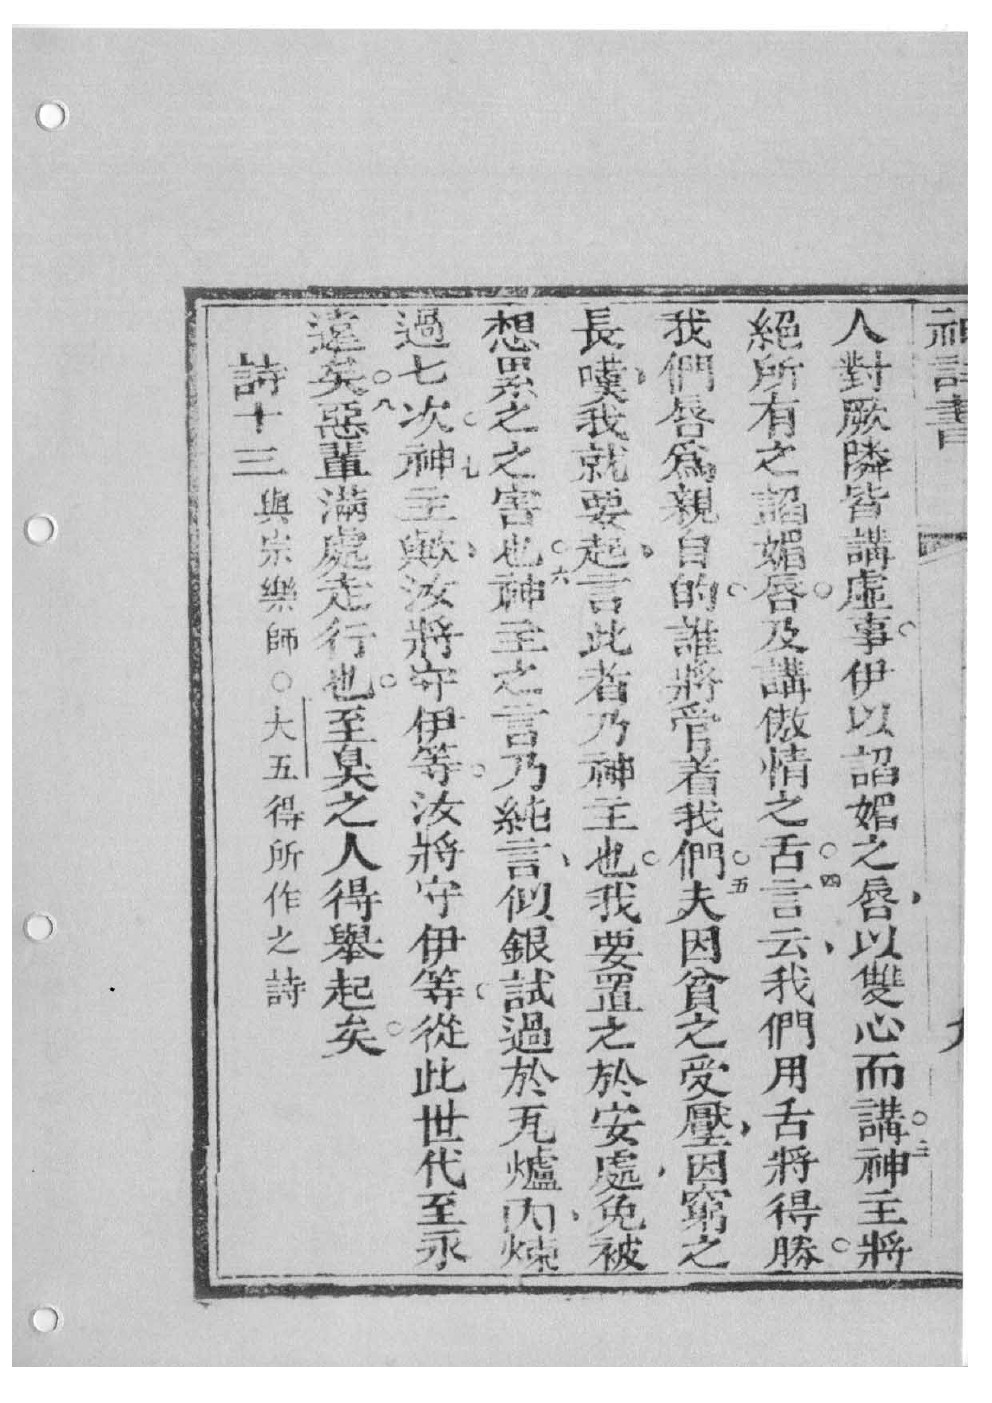 神詩書 九
人對厥隣皆講虛事伊以諂媚之唇以雙心而講三神主將
絕所有之諂媚唇及講傲情之舌四言云我們用舌將得勝
我們唇為親自的誰將管着我們五夫因貧之受壓因窮之
長嘆我就要起言此者乃神主也我要置之於安處免被
想累之之害也六神主之言乃純言似銀試過於瓦爐內煉
過七次七神主歟汝將守伊等汝將守伊等從此世代至永
遠矣八惡輩滿處走行也至臭之人得舉起矣
詩十三 與宗樂師○大五得所作之詩